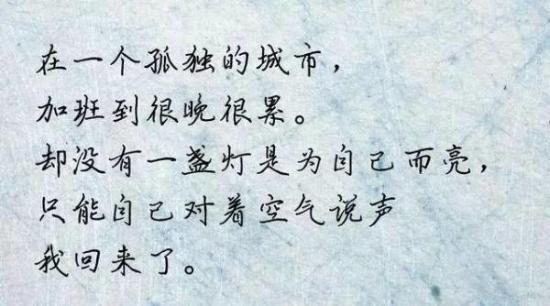 在一个孤独的城市，
加班到很晚很累。
却没有一盏灯是为自己而亮，
只能自己对着空气说声
我回来了。